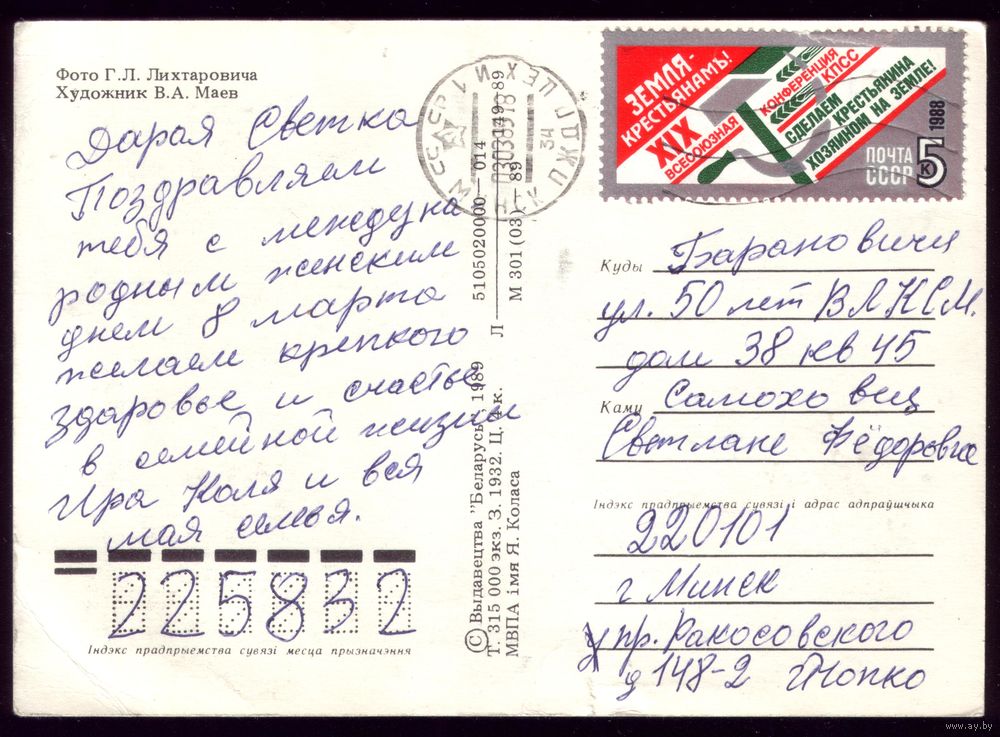 Фото Г.Л. Лихтаровича
Художник В.А. Маев
Дарая Светка
Поздравляем
тебя с междуна
родным женским
днем 8 марта
желаем крепкого
здаровье и счастье
в семейной жизни
Ира Коля и вся
мая семья.
225832
Індэкс прадпрыемства сувязі месца прызначэння
© Выдавецтва "Беларусь", 1989
Т. 315 000 экз. З. 1932. Ц. 4 к.
МВПА імя Я. Коласа
5105020000—014
Л
М 301(03) 89
149—89
ЗЕМЛЯ-
КРЕСТЬЯНАМЪ!
XIX
ВСЕСОЮЗНАЯ
КОНФЕРЕНЦИЯ
КПСС
СДЕЛАЕМ
КРЕСТЬЯНИНА
ХОЗЯИНОМ НА ЗЕМЛЕ!
1988
ПОЧТА
СССР
5 к
Куды Барановичи
ул. 50 лет ВЛКСМ.
дом 38 кв 45
Каму Самохо вец
Светлане Фёдоровне
Індэкс прадпрыемства сувязі і адрас адпраўшчыка
220101
г Минск
у пр. Ракосовского
д 148-2 Топко
www.ay.by